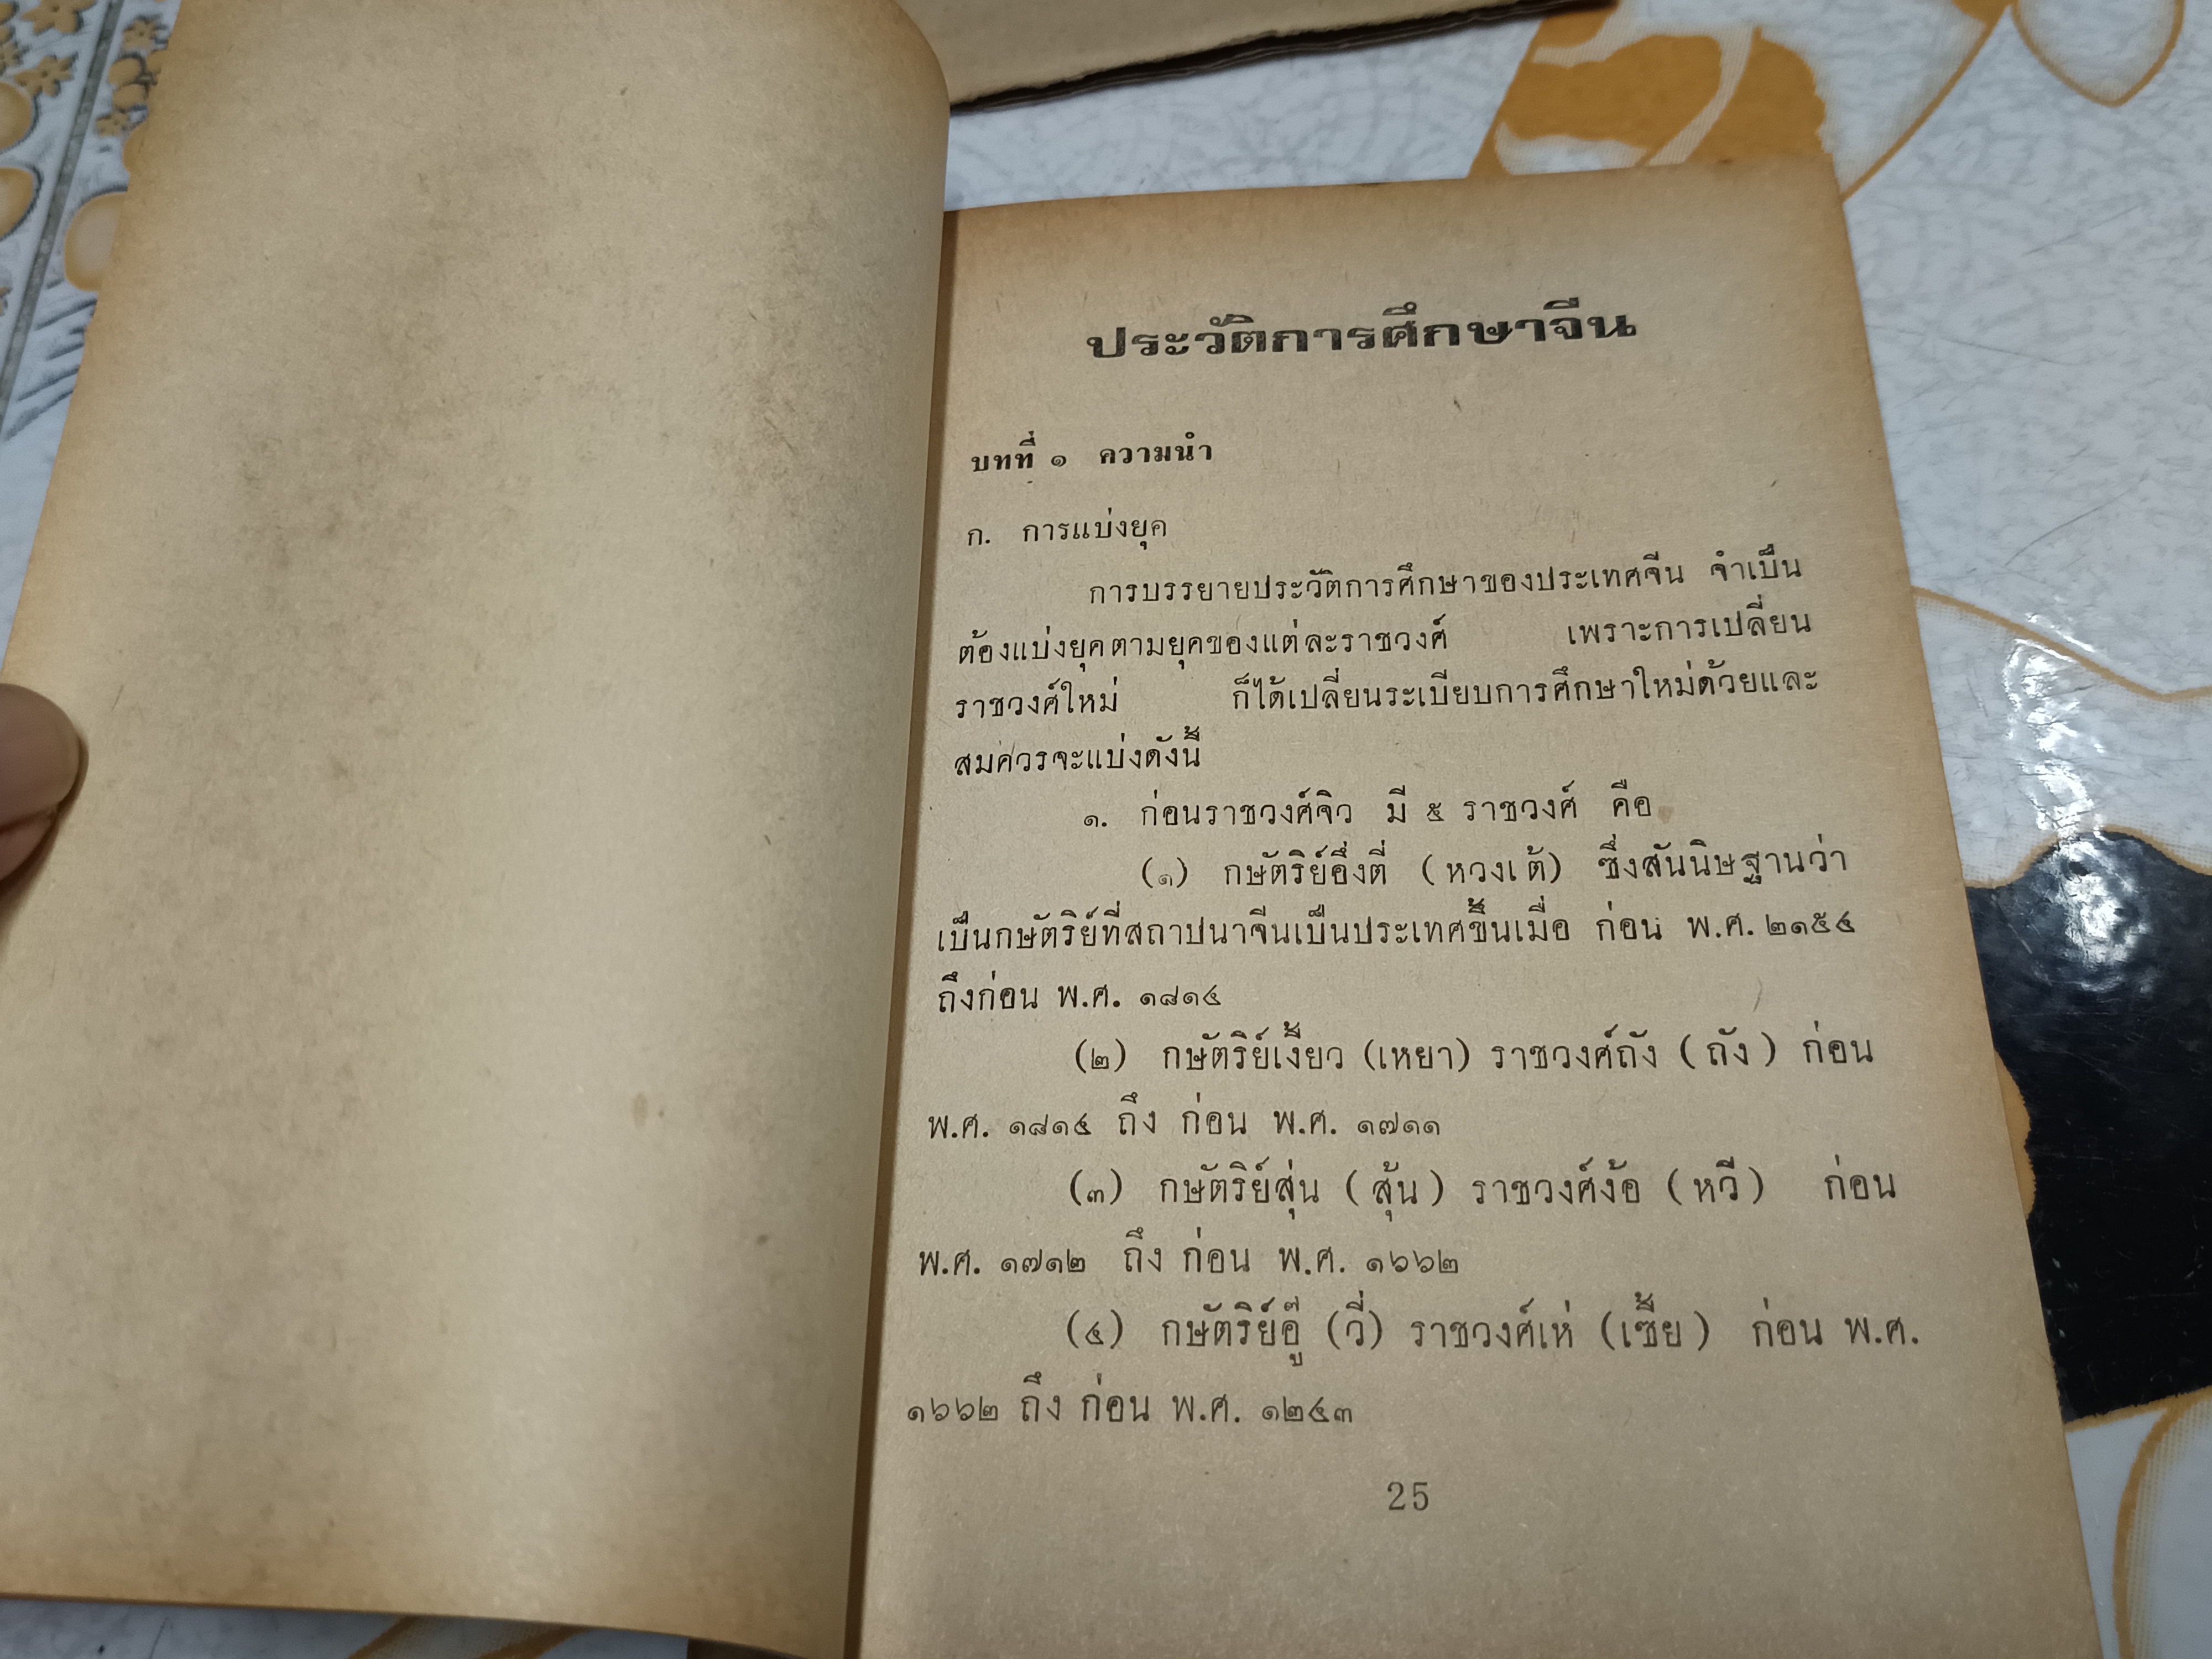 ประวัติการศึกษาจีน
บทที่ ๑ ความนำ
ก. การแบ่งยุค
การบรรยายประวัติการศึกษาของประเทศจีน จำเป็น
ต้องแบ่งยุคตามยุคของแต่ละราชวงศ์ เพราะการเปลี่ยน
ราชวงศ์ใหม่ ก็ได้เปลี่ยนระเบียบการศึกษาใหม่ด้วยและ
สมควรจะแบ่งดังนี้
๑. ก่อนราชวงศ์จิว มี ๕ ราชวงศ์ คือ
(๑) กษัตริย์อึ่งตี่ (หวงเต้) ซึ่งสันนิษฐานว่า
เป็นกษัตริย์ที่สถาปนาจีนเป็นประเทศขึ้นเมื่อ ก่อน พ.ศ. ๒๑๕๔
ถึงก่อน พ.ศ. ๑๘๑๔
(๒) กษัตริย์เงี้ยว (เหยา) ราชวงศ์ถัง (ถัง) ก่อน
พ.ศ. ๑๘๑๔ ถึง ก่อน พ.ศ. ๑๗๑๑
(๓) กษัตริย์สุ่น (สุ้น) ราชวงศ์ง้อ (หวี) ก่อน
พ.ศ. ๑๗๑๒ ถึง ก่อน พ.ศ. ๑๖๖๒
(๔) กษัตริย์อู๊ (วี่) ราชวงศ์เห่ (เซี้ย) ก่อน พ.ศ.
๑๖๖๒ ถึง ก่อน พ.ศ. ๑๒๔๓
25